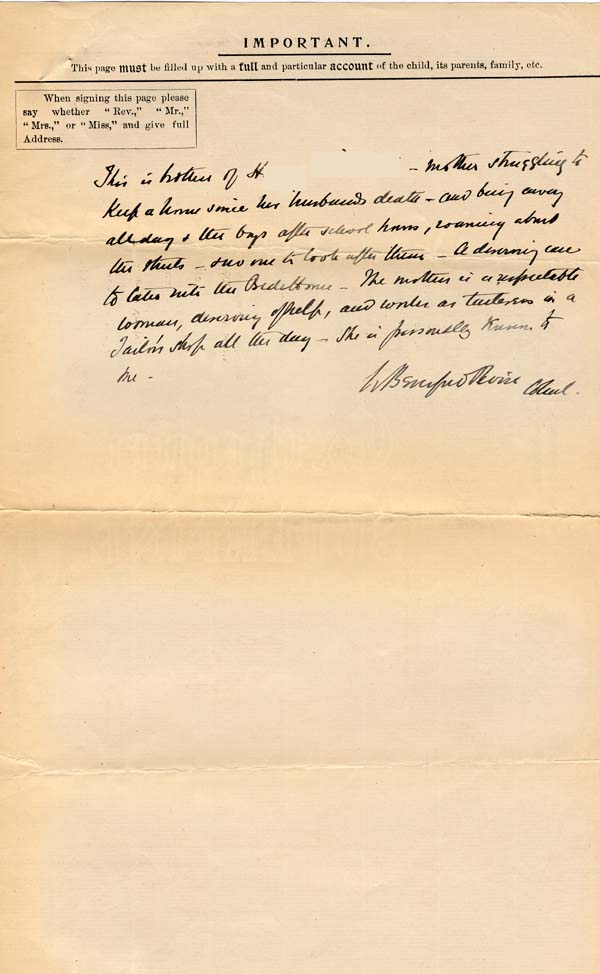 IMPORTANT.
This page must be filled up with a full and particular account of the child, its parents, family, etc.
When signing this page please
say whether "Rev.," "Mr.,"
"Mrs.," or "Miss," and give full
Address.
This is brother of H. – mother struggling to
keep a home since her husband's death – and being away
all day & the boys after school hours, roaming about
the streets – & no one to look after them – A deserving case
to take into the Home – The mother is a respectable
woman, deserving of help, and works as tailoress in a
Tailor's shop all the day – She is personally known to
me –